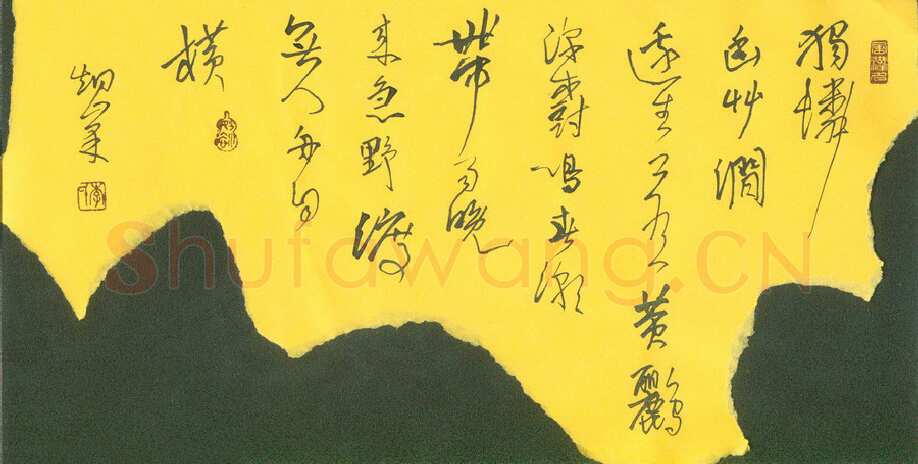 獨憐
幽艸澗
邊生上有黃鸝
深樹鳴春潮
帶雨晚
來急野渡
無人舟自
橫
Shufawang.CN